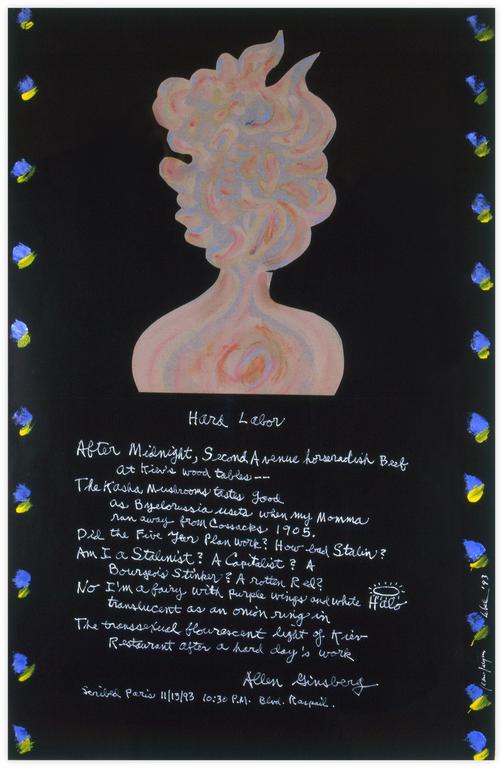 Hard Labor
After Midnight, Second Avenue horseradish Beef
at Kiev's wood tables --
The Kasha Mushrooms tastes good
as Byelorussia usets when my Momma
ran away from Cossacks 1905.
Did the Five Year Plan work? How bad Stalin?
Am I a Stalinist? A Capitalist? A
Bourgeois Stinker? A rotten Red?
No I'm a fairy with purple wings and white Halo
translucent as an onion ring in
The transsexual flourescent light of Kiev
Restaurant after a hard day's work
Allen Ginsberg
Scribed Paris 11/13/93 10:30 P.M. Blvd. Raspail.